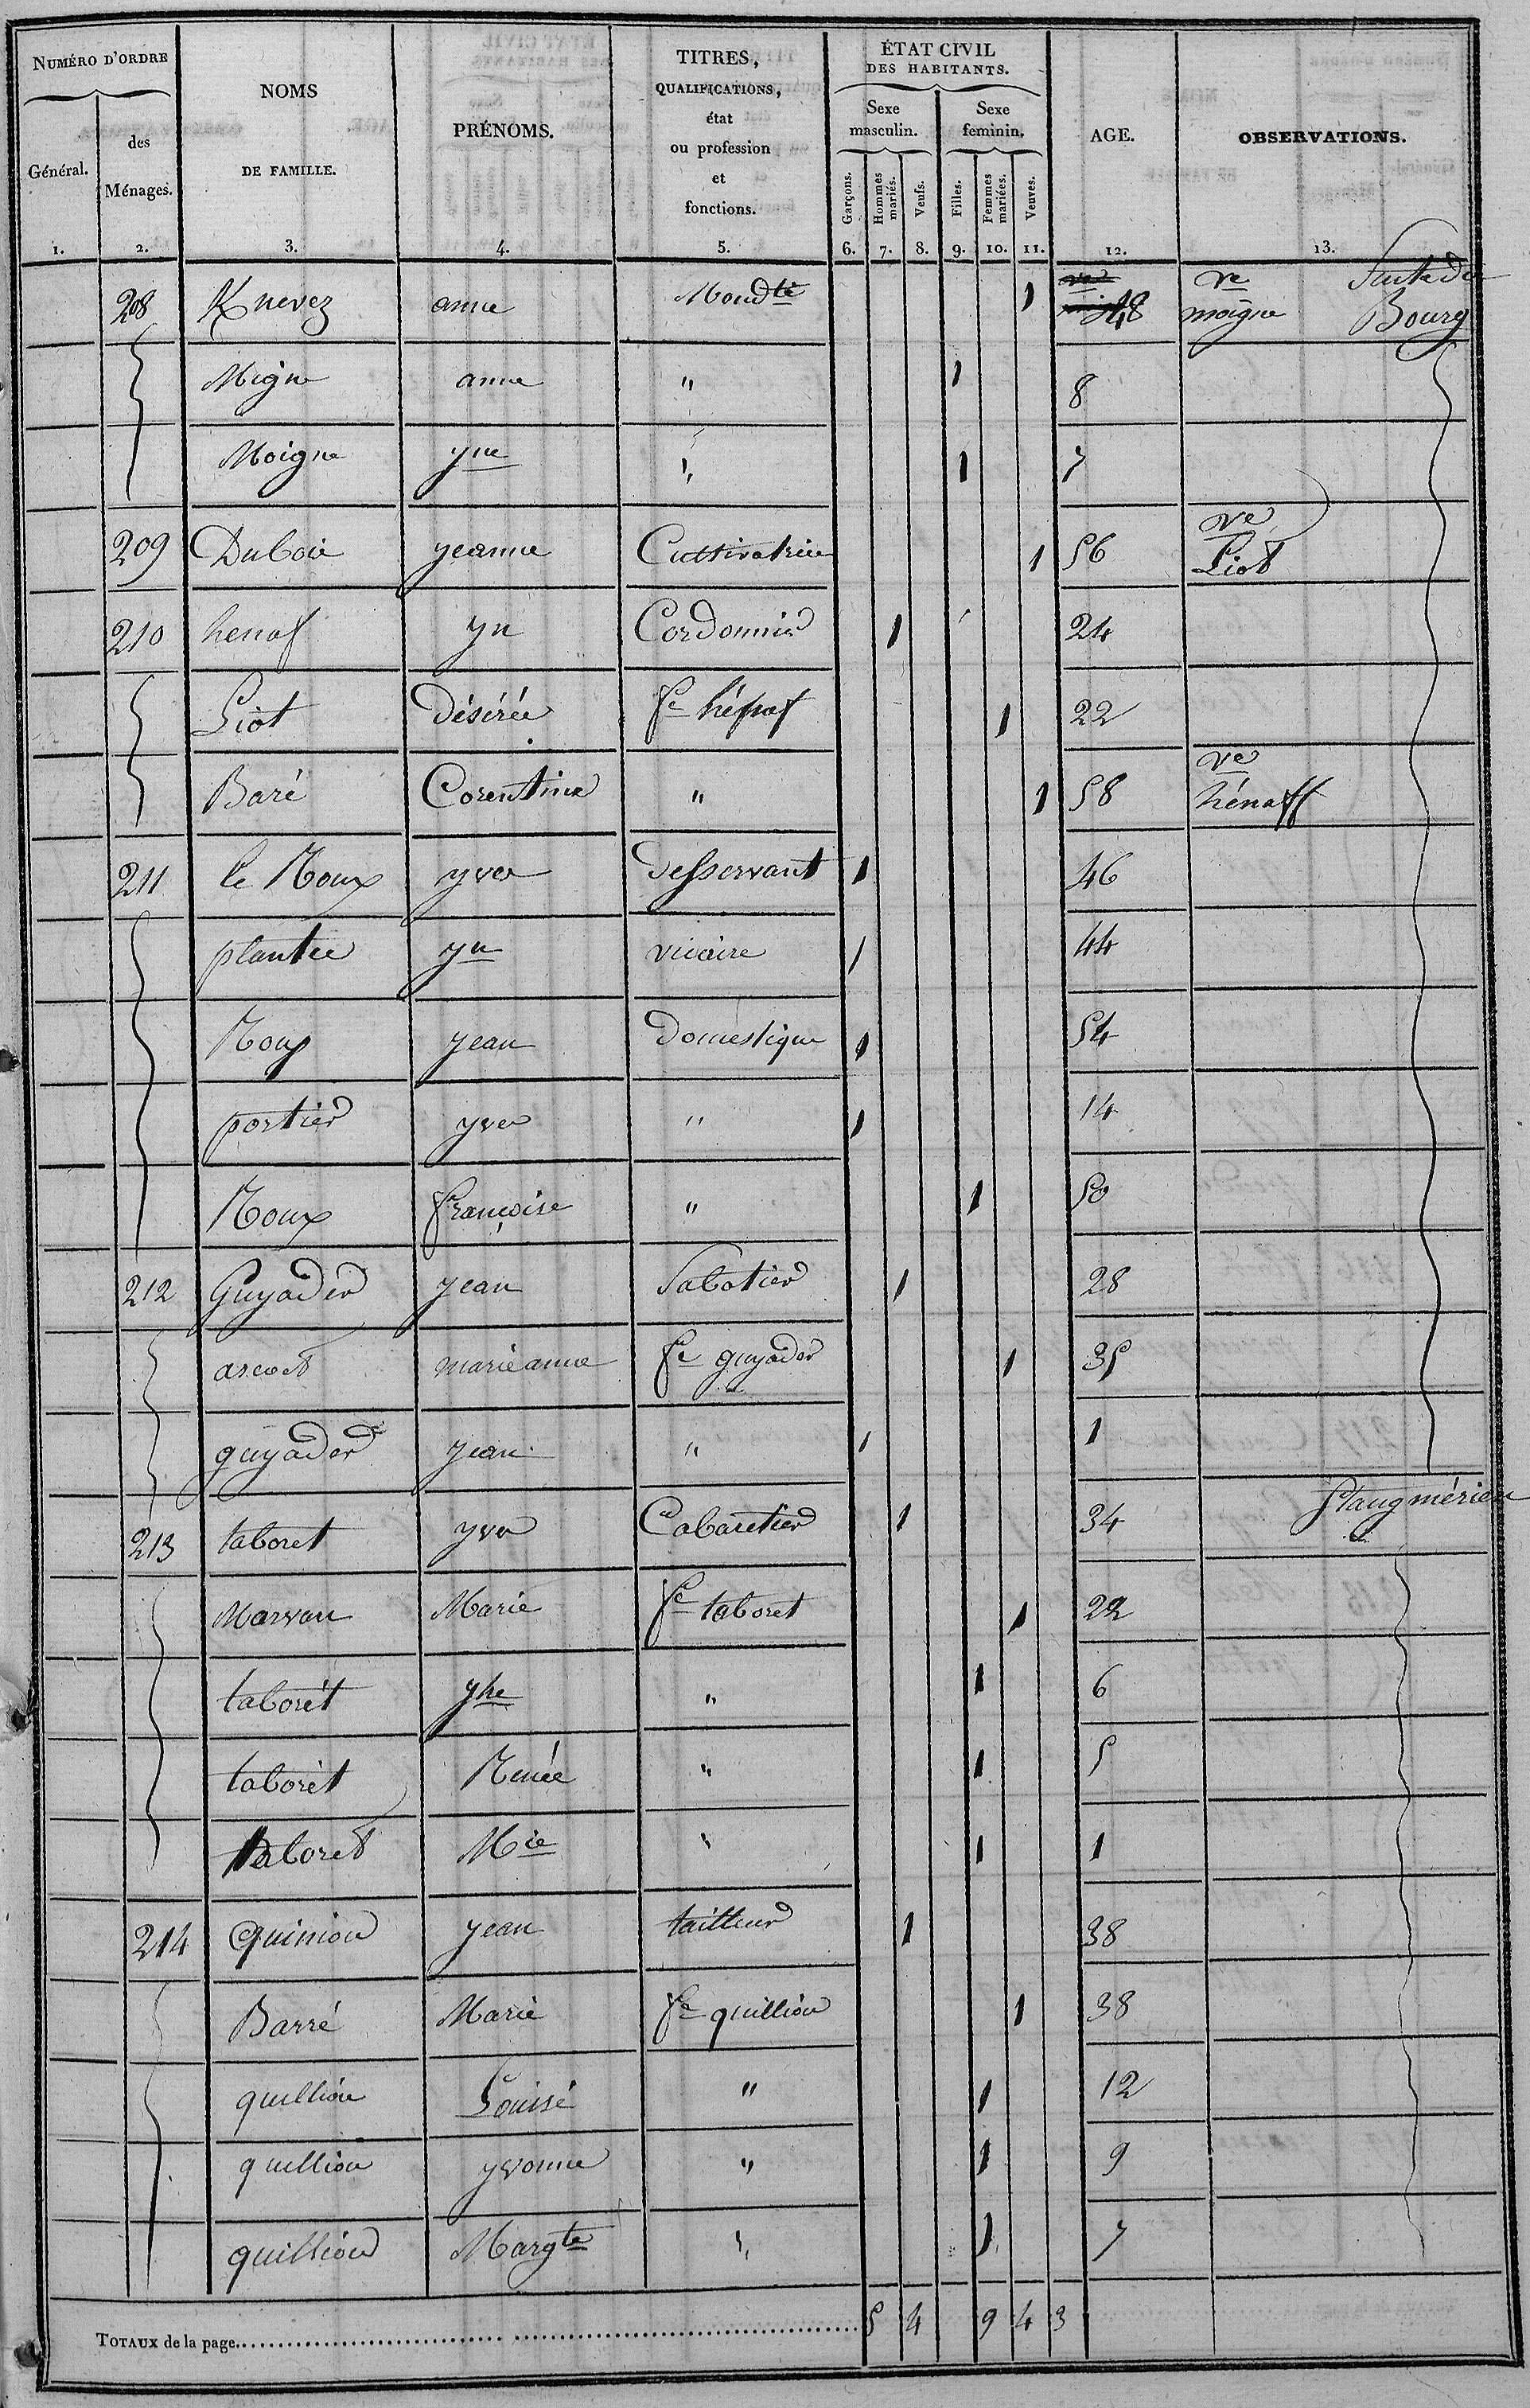 NUMÉRO D'ORDRE
Général.
des Ménages.
NOMS
DE FAMILLE.
PRÉNOMS.
TITRES,
QUALIFICATIONS,
état
ou profession
et
fonctions.
ÉTAT CIVIL
DES HABITANTS.
Sexe masculin.
Sexe feminin.
Garçons.
Hommes mariés.
Veufs.
Filles.
Femmes mariées.
Veuves.
AGE.
OBSERVATIONS.
1. 2. 3. 4. 5. 6. 7. 8. 9. 10. 11. 12. 13.
208 Knevez anne Mendte 1 48 ve moigne Suite du Bourg
Migne anne " 1 8
Moigne yne " 1 7
209 Dubois yeanne Cultivatrice 1 56 ve Liot
210 henaf yn Cordonnier 1 24
Liot désirée fe hénaf 1 22
Baré Corentine " 1 58 ve hénaff
211 le Roux yves desservant 1 46
plantec yn vicaire 1 44
Roux yean domestique 1 54
portier yves " 1 14
Roux françoise " 1 50
212 Guyader yean Sabotier 1 28
ascoet marie anne fe guyader 1 35
guyader yean " 1 1
213 taboret yves Cabaretier 1 34 Stang mérien
Marvan Marie fe taboret 1 22
taborét yne " 1 6
taborét Renée " 1 5
taboret Mie " 1 1
214 Quiniou yean tailleur 1 38
Barré Marie fe quilliou 1 38
quilliou Louise " 1 12
quilliou yvonne " 1 9
quilliou Margte " 1 7
TOTAUX de la page. 5 4 9 4 3